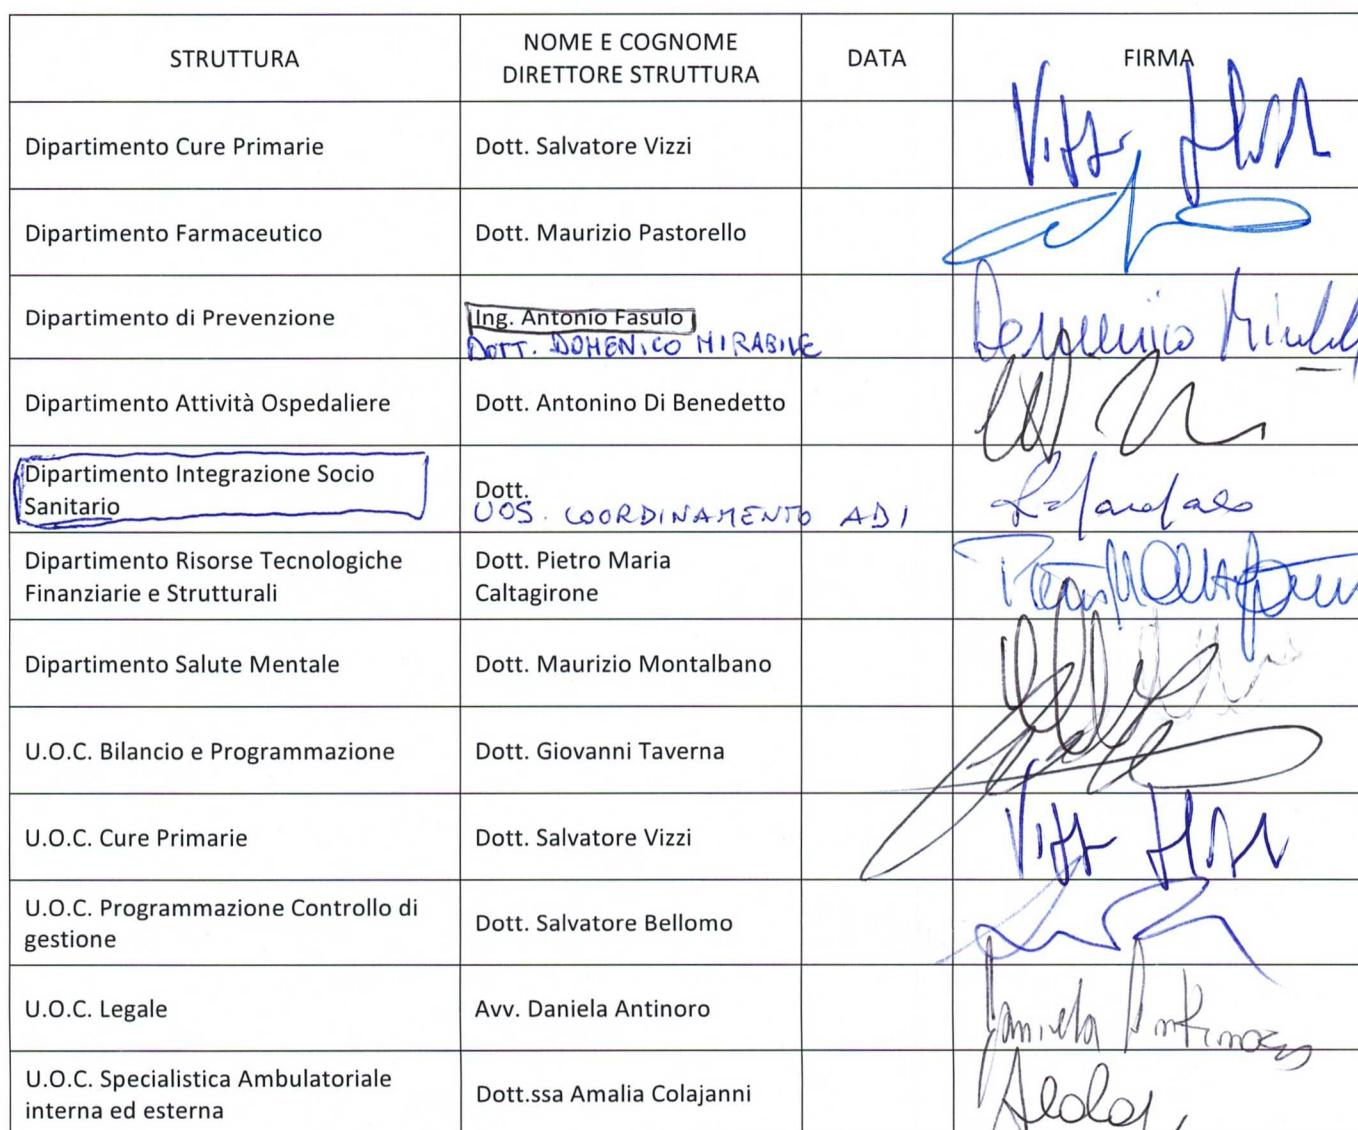 STRUTTURA
NOME E COGNOME
DIRETTORE STRUTTURA
DATA
FIRMA
Dipartimento Cure Primarie
Dott. Salvatore Vizzi
Dipartimento Farmaceutico
Dott. Maurizio Pastorello
Dipartimento di Prevenzione
Ing. Antonio Fasulo
DOTT. DOMENICO MIRABILE
Domenico
Dipartimento Attività Ospedaliere
Dott. Antonino Di Benedetto
Dipartimento Integrazione Socio
Sanitario
Dott.
UOS. COORDINAMENTO ADI
Dipartimento Risorse Tecnologiche
Finanziarie e Strutturali
Dott. Pietro Maria
Caltagirone
Dipartimento Salute Mentale
Dott. Maurizio Montalbano
U.O.C. Bilancio e Programmazione
Dott. Giovanni Taverna
U.O.C. Cure Primarie
Dott. Salvatore Vizzi
U.O.C. Programmazione Controllo di
gestione
Dott. Salvatore Bellomo
U.O.C. Legale
Avv. Daniela Antinoro
Daniela Antinoro
U.O.C. Specialistica Ambulatoriale
interna ed esterna
Dott.ssa Amalia Colajanni